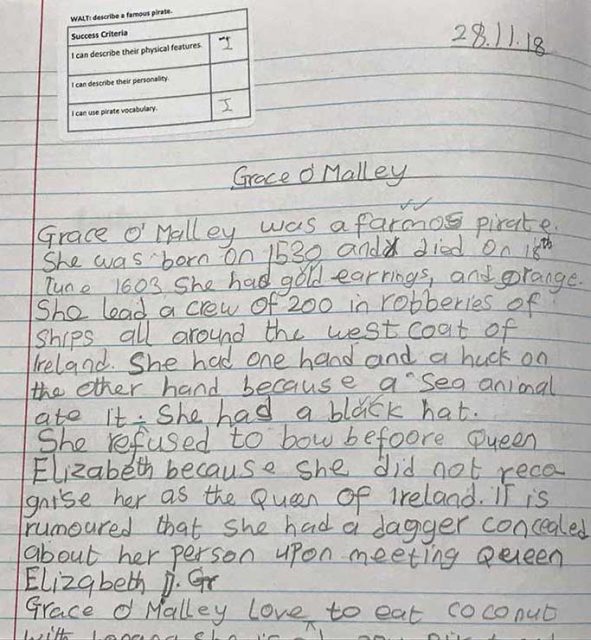 WALT: describe a famous pirate.
Success Criteria
I can describe their physical features. I
I can describe their personality.
I can use pirate vocabulary. I
28.11.18
Grace O'Malley
Grace O'Malley was a farmos pirate.
She was born on 1530 and died on 18th
June 1603 She had gold earrings, and orange.
She lead a crew of 200 in robberies of
ships all around the west coat of
Ireland. She had one hand and a huck on
the other hand because a sea animal
ate it. She had a black hat.
She refused to bow befoore Queen
Elizabeth because she did not reco
gnise her as the Queen of Ireland. IT is
rumoured that she had a dagger concealed
about her person upon meeting Queen
Elizabeth I. Gr
Grace O'Malley Love to eat coconut
with